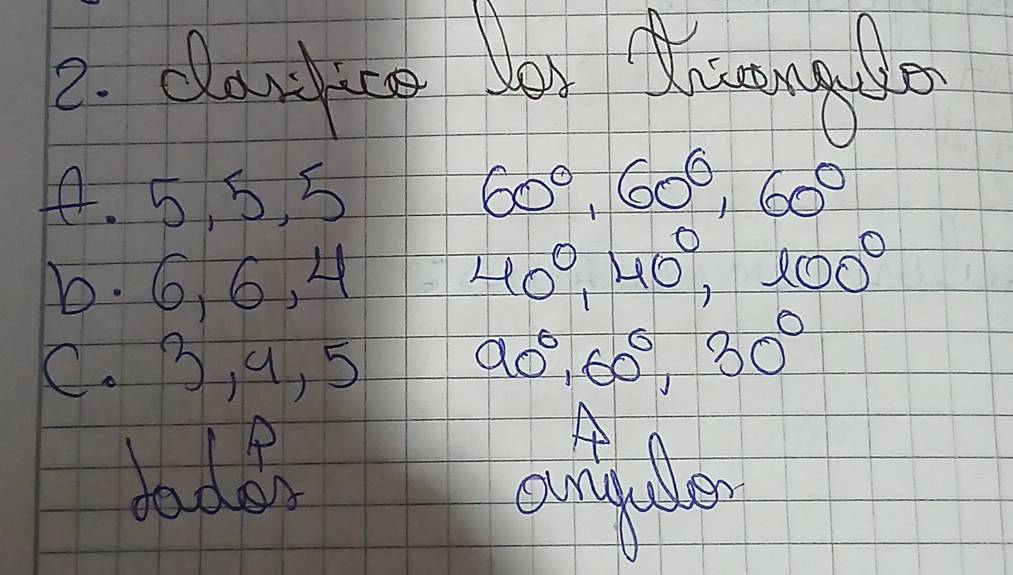 2. clasifico los triangulos
A. 5, 5, 5 60°, 60°, 60°
b. 6, 6, 4 40°, 40°, 100°
C. 3, 4, 5 90°, 60°, 30°
lados angulos